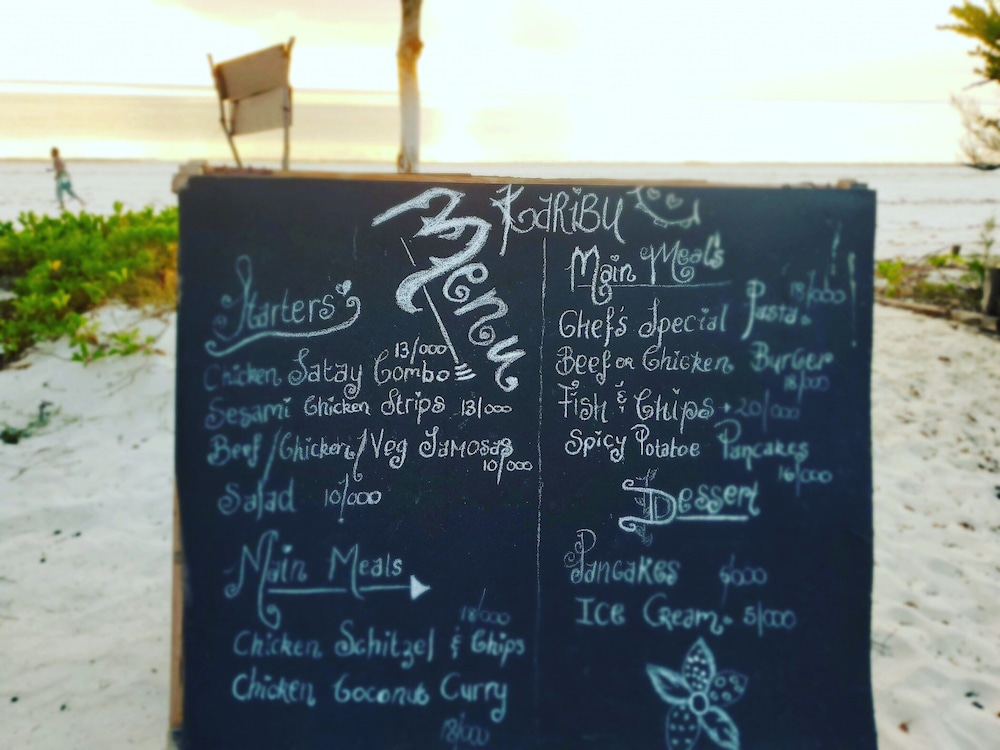 Menu
Karibu
Starters
13/000
Chicken Satay Combo
Sesami Chicken Strips 13/000
Beef/Chicken/Veg Samosas
10/000
Salad 10/000
Main Meals
18/000
Chicken Schitzel & Chips
Chicken Coconut Curry
18/000
Main Meals
18/000
Chef's Special Pasta.
Beef or Chicken Burger
18/000
Fish & Chips 20/000
Spicy Potatoe Pancakes
16/000
Dessert
Pancakes 6/000
Ice Cream. 5/000